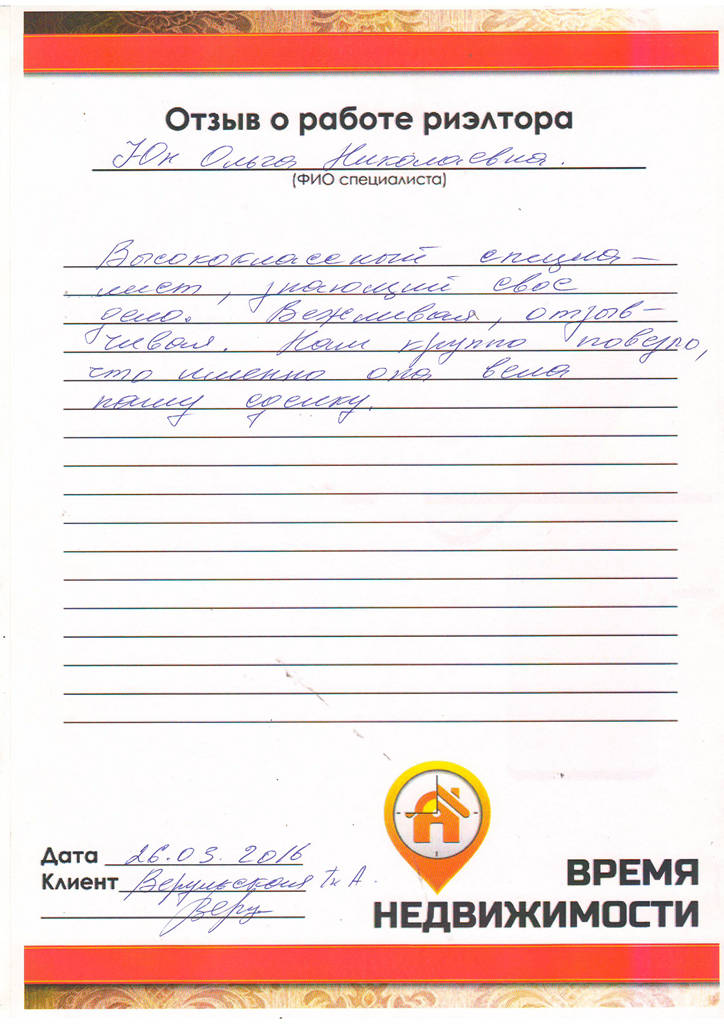 Отзыв о работе риэлтора
Юн Ольга Николаевна.
(ФИО специалиста)
Высококлассный специа-
лист, знающий свое
дело. Вежливая, отзыв-
чивая. Нам крупно повезло,
что именно она вела
нашу сделку.
Дата 26.03.2016
Клиент Верульская
ВРЕМЯ
НЕДВИЖИМОСТИ